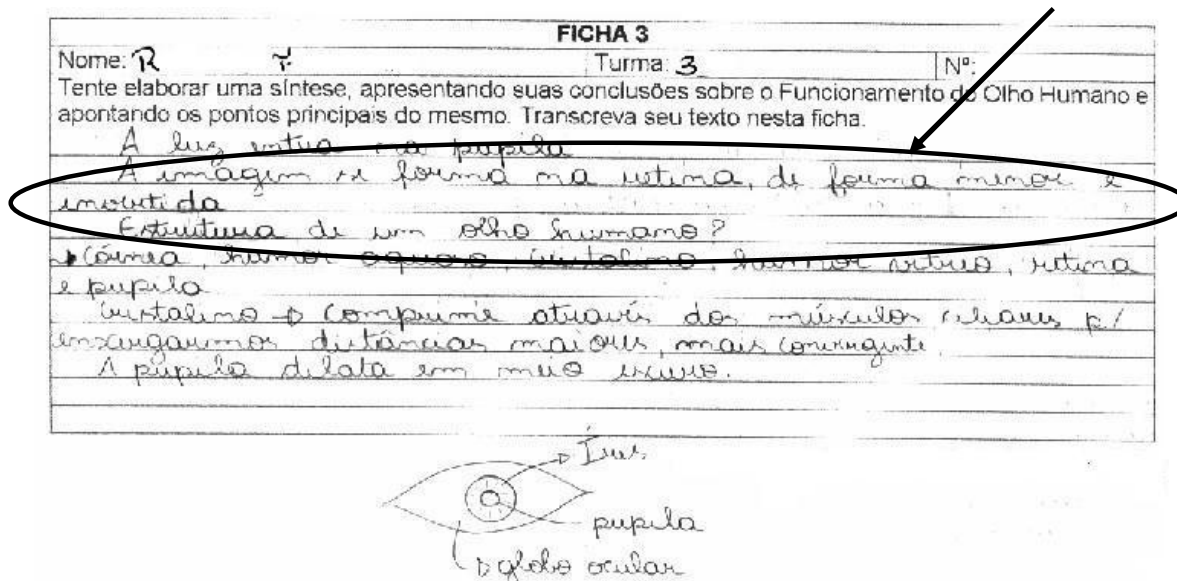 FICHA 3
Nome: R F. Turma: 3 Nº:
Tente elaborar uma síntese, apresentando suas conclusões sobre o Funcionamento do Olho Humano e
apontando os pontos principais do mesmo. Transcreva seu texto nesta ficha.
A luz entra na pupila
A imagem se forma na retina, de forma menor e
invertida
Estrutura de um olho humano?
Córnea, humor aquoso, cristalino, humor vítreo, retina
e pupila
Cristalino → Comprime através dos músculos ciliares p/
enxergarmos distâncias maiores, mais convergente.
A pupila dilata em meio escuro.
Íris
pupila
globo ocular